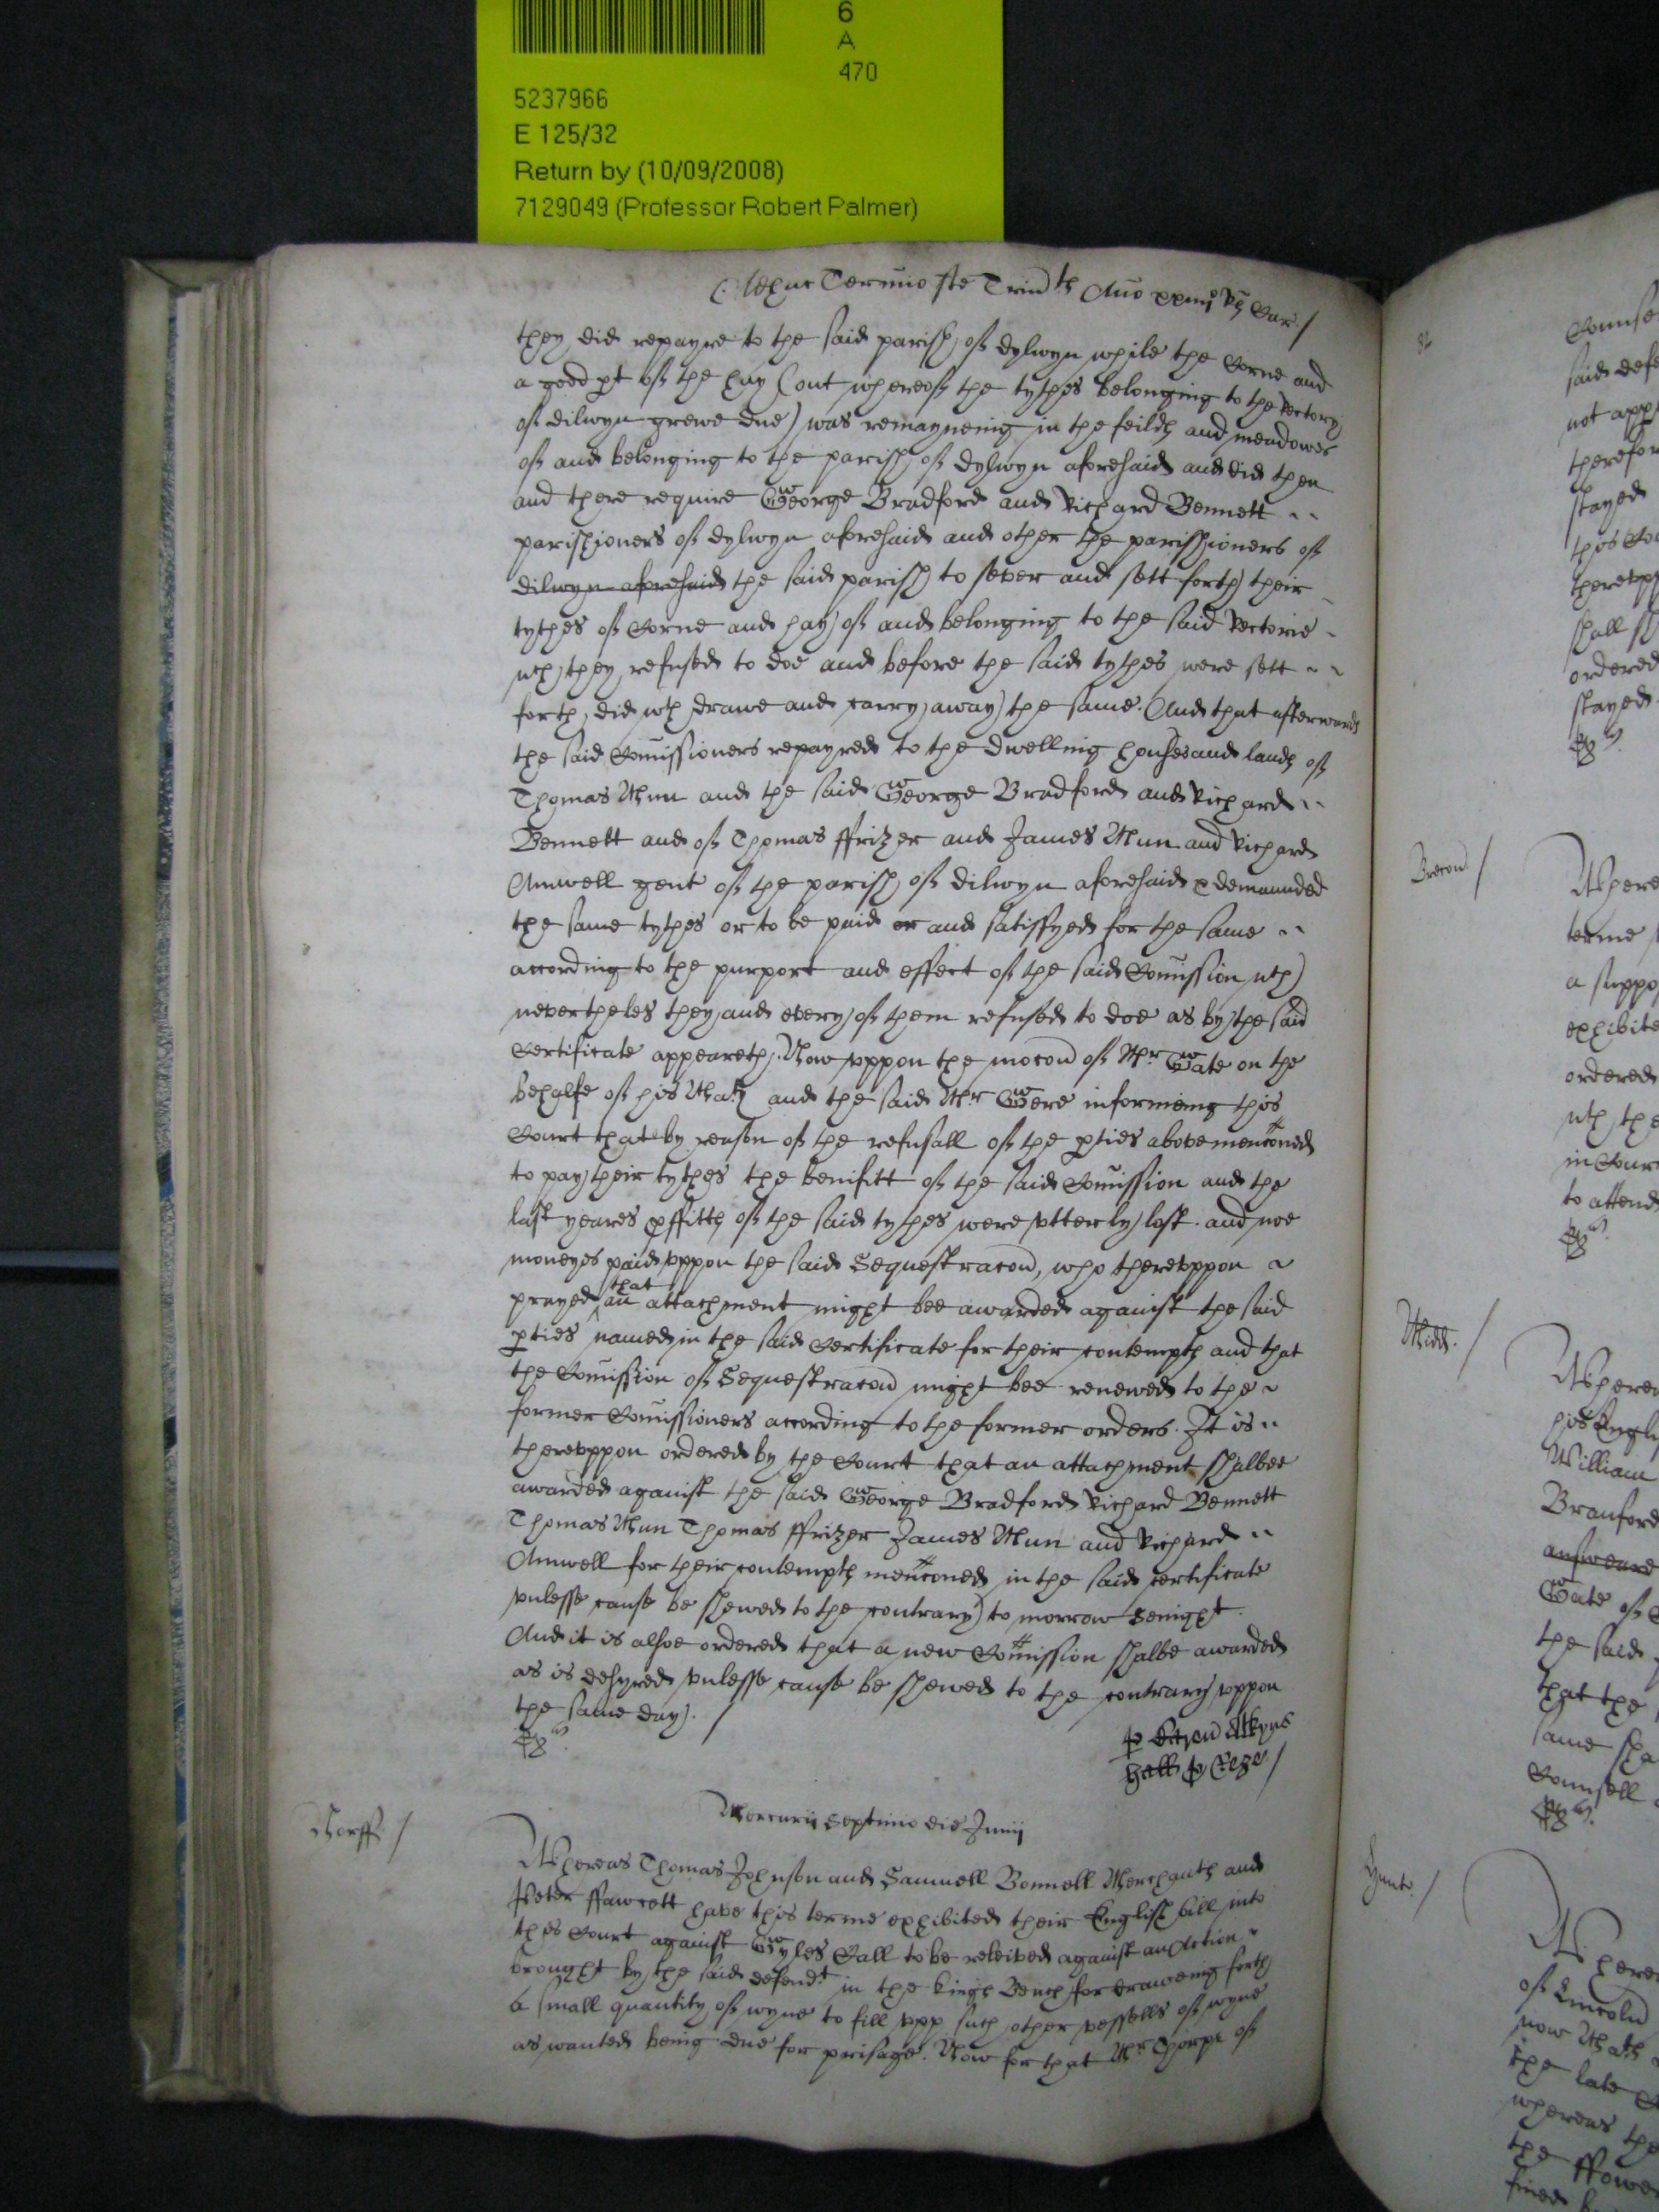 6
A
470
5237966
E 125/32
Return by (10/09/2008)
7129049 (Professor Robert Palmer)
Adhuc Termino Ste Trinitis Anno xxiiij Rs Car /
they did repayre to the said parish of dylwyn while the Corne and
a good pt of the hay (out whereof the tythes belonging to the Rectory
of dilwyn grewe due) was remayneing in the feilds and meadowes
of and belonging to the parish of dylwyn aforesaid and did then
and there require George Bradford and Richard Bennett
parishioners of dylwyn aforesaid and other the parishioners of
dilwyn aforesaid the said parish to sever and sett forth their
tythes of Corne and hay of and belonging to the said Rectorie
wch they refused to doe and before the said tythes were sett
forth did wth drawe and carry away the same. And that afterwards
the said Comissioners repayred to the dwelling houses and lands of
Thomas Mun and the said George Bradford and Richard
Bennett and of Thomas ffrizer and James Mun and Richard
Amwell gent of the parish of dilwyn aforesaid & demaunded
the same tythes or to be paid or and satisfyed for the same
according to the purport and effect of the said Comission wch
nevertheles they and every of them refused to doe as by the said
Certificate appeareth. Now uppon the mocon of Mr Gate on the
behalfe of his Matie and the said Mr Gere informeing this
Court that by reason of the refusall of the pties above menconed
to pay their tythes the benifitt of the said Comission and the
last yeares pffitts of the said tythes were utterly lost. and noe
moneyes paid uppon the said Sequestracon, who thereuppon
prayed that an attachment might bee awarded against the said
pties named in the said Certificate for their contempts and that
the Comission of Sequestracon might bee renewed to the
former Comissioners according to the former orders. It is
thereuppon ordered by the Court that an attachment shalbee
awarded against the said George Bradford Richard Bennett
Thomas Mun Thomas ffrizer James Mun and Richard
Amwell for their contempts menconed in the said certificate
unlesse cause be shewed to the contrary to morrow senight.
And it is alsoe ordered that a new Comission shalbe awarded
as is desyred unlesse cause be shewed to the contrary uppon
the same day. /
Atkyns
Hall p Rege /
Mercurij Septimo die Junij
Norff. /
Whereas Thomas Johnson and Samuell Bonnell Merchants and
Peter ffawcett have this terme exhibited their English bill into
this Court against Gyles Call to be releived against an Action
brought by the said defendt in the kings Bench for draweing forth
a small quantity of wyne to fill upp such other vessells of wyne
as wanted being due for prisage. Now for that Mr Thorpe of
Counse
said defe
not app
therefor
stayed
this Cou
thereupp
shall sh
ordered
stayed
Brecon /
Where
terme
a suppo
exhibite
ordered
wch the
in Cour
to attend
Midd. /
Wherea
his Engli
William
Branford
answeare
Gate of
the said
that the
same sha
Counsell
Hunt. /
Wherea
of Lincoln
now Maties
the late
whereas the
the ffowe